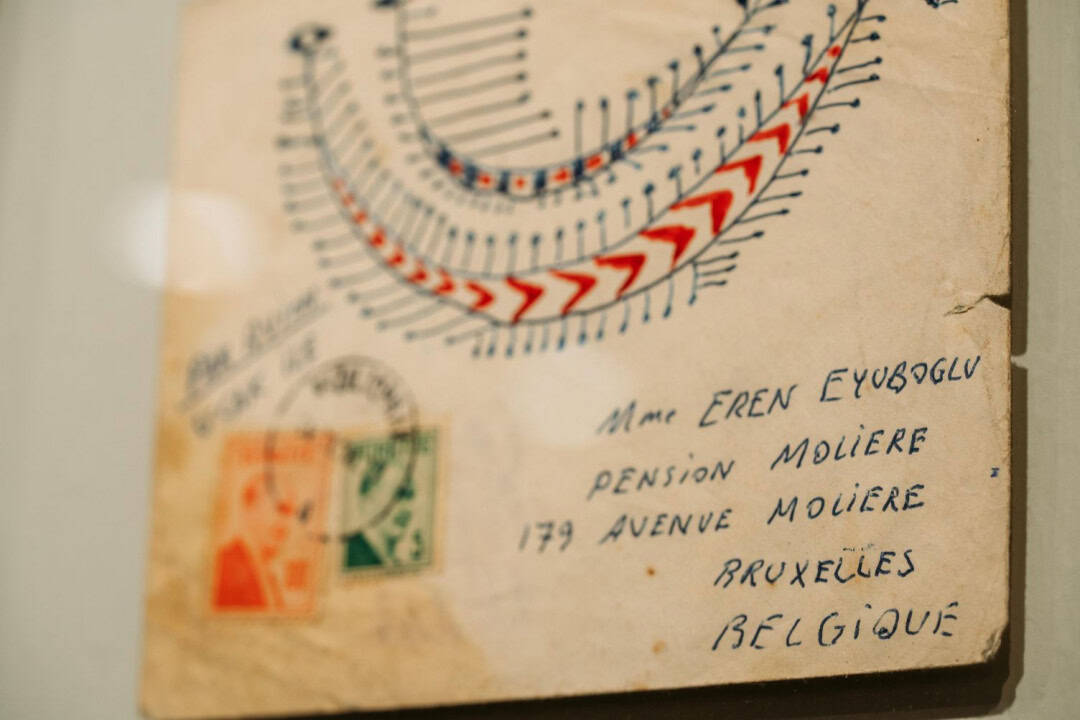 Mme EREN EYUBOGLU
PENSiON MOLiERE
179 AVENUE MOLiERE
BRUXELLES
BELGiQUE